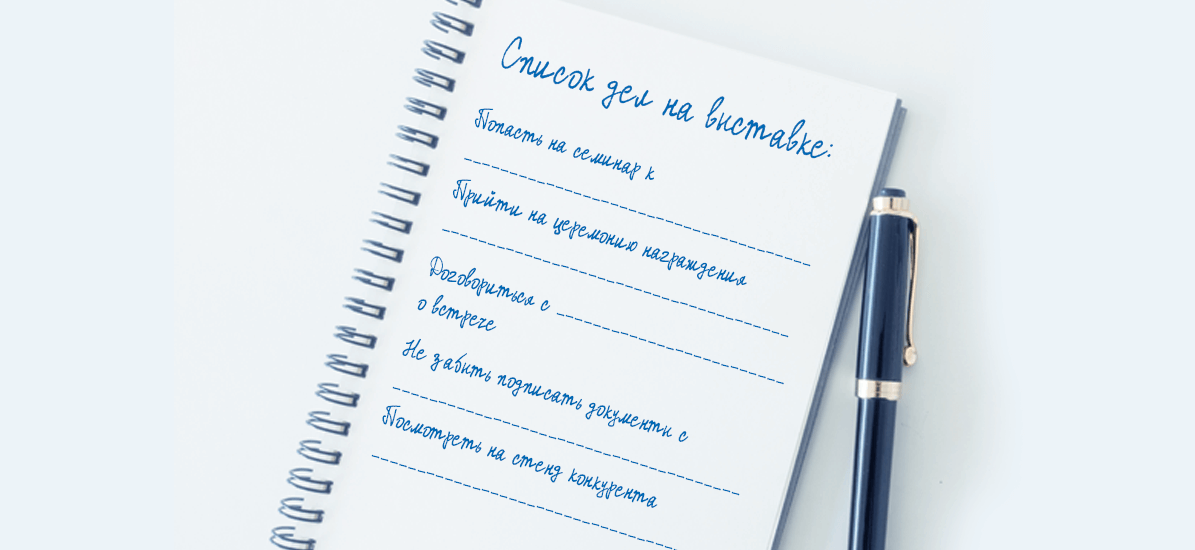 Список дел на выставке:
Попасть на семинар к
____________________
Прийти на церемонию награждения
____________________
Договориться с ____________________
о встрече
Не забыть подписать документы с
____________________
Посмотреть на стенд конкурента
____________________